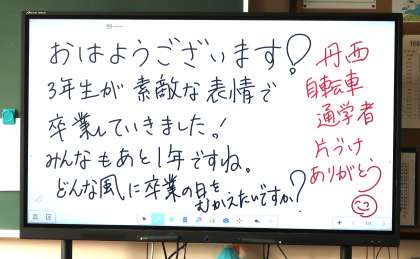 おはようございます!
3年生が素敵な表情で
卒業していきました!
みんなもあと1年ですね。
どんな風に卒業の日を
むかえたいですか?
丹西
自転車
通学者
片づけ
ありがとう